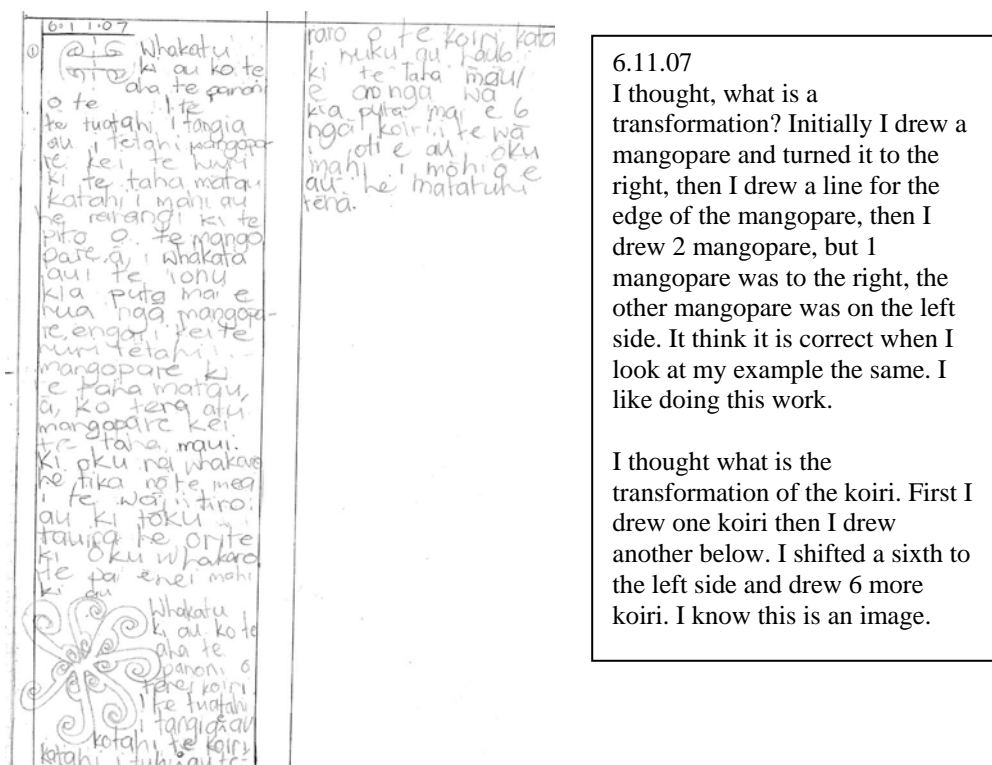 6.11.07
①
Whakatu
ki au ko te
aha te panoni
o te I te
te tuatahi i tangia
au i tetahi mangopa-
re kei te huri
ki te taha matau
katahi i mahi au
he rarangi ki te
pito o te mango
pare.ā, i whakata
au i te
kia puta mai e
rua ngā mangopa-
re, engari kei te
huri tetahi
mangopare ki
te taha matau,
ā, ko tera atu
mangopare kei
te taha maui.
Ki oku nei whakaro
he tika no te mea
i te wā i tiro
au ki toku
tauira he orite
ki oku whakaro
He pai enei mahi
ki au
Whakatu
ki au ko te
aha te
panoni o
tenei koiri
I te tuatahi
i tangia au
kotahi te koiri
katahi i tuhi au te-
raro o te koiri kata
i nuku au
ki te taha māui
e ono nga wā
kia puta mai e 6
ngā koiri i te wā
i oti e au oku
mahi i mōhio e
au he matatuhi
tēna.
6.11.07
I thought, what is a
transformation? Initially I drew a
mangopare and turned it to the
right, then I drew a line for the
edge of the mangopare, then I
drew 2 mangopare, but 1
mangopare was to the right, the
other mangopare was on the left
side. It think it is correct when I
look at my example the same. I
like doing this work.
I thought what is the
transformation of the koiri. First I
drew one koiri then I drew
another below. I shifted a sixth to
the left side and drew 6 more
koiri. I know this is an image.